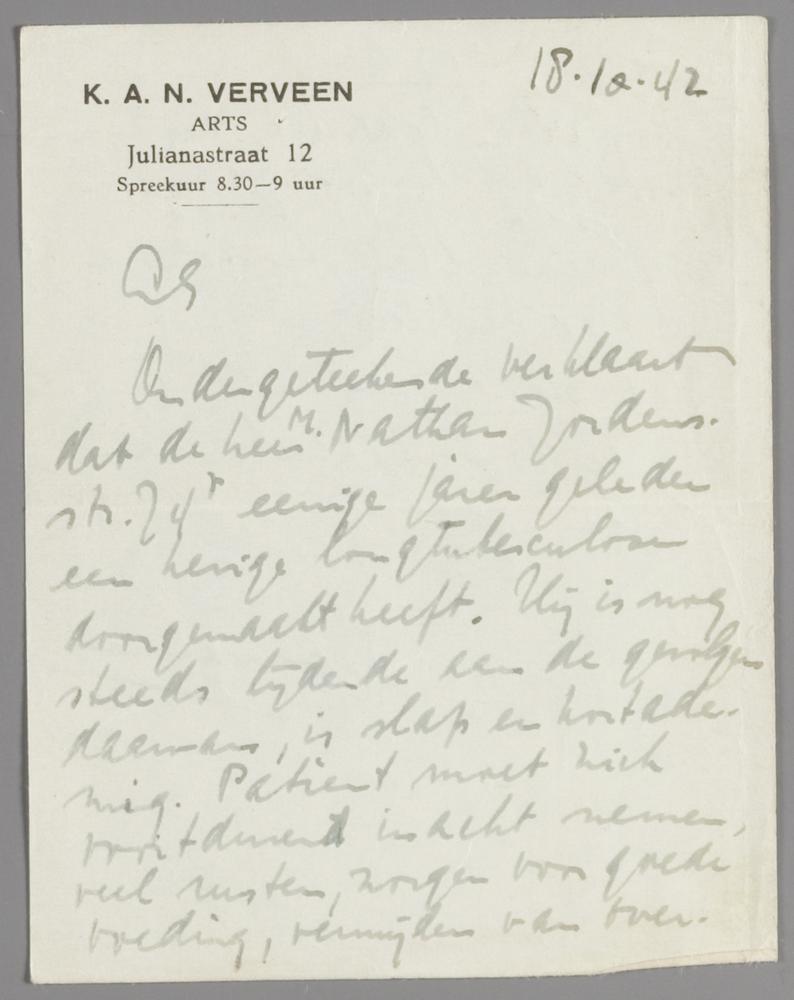 K. A. N. VERVEEN
ARTS
Julianastraat 12
Spreekuur 8.30—9 uur
18.10.42
Ondergeteekende verklaart
dat de heer M. Nathan Jordens-
str. 74 eenige jaren geleden
een hevige longtuberculose
doorgemaakt heeft. Hij is nog
steeds lijdende aan de gevolgen
daarvan, is slap en kortade-
mig. Patient moet zich
voortdurend in acht nemen,
veel rusten, zorgen voor goede
voeding, vermijden van over-